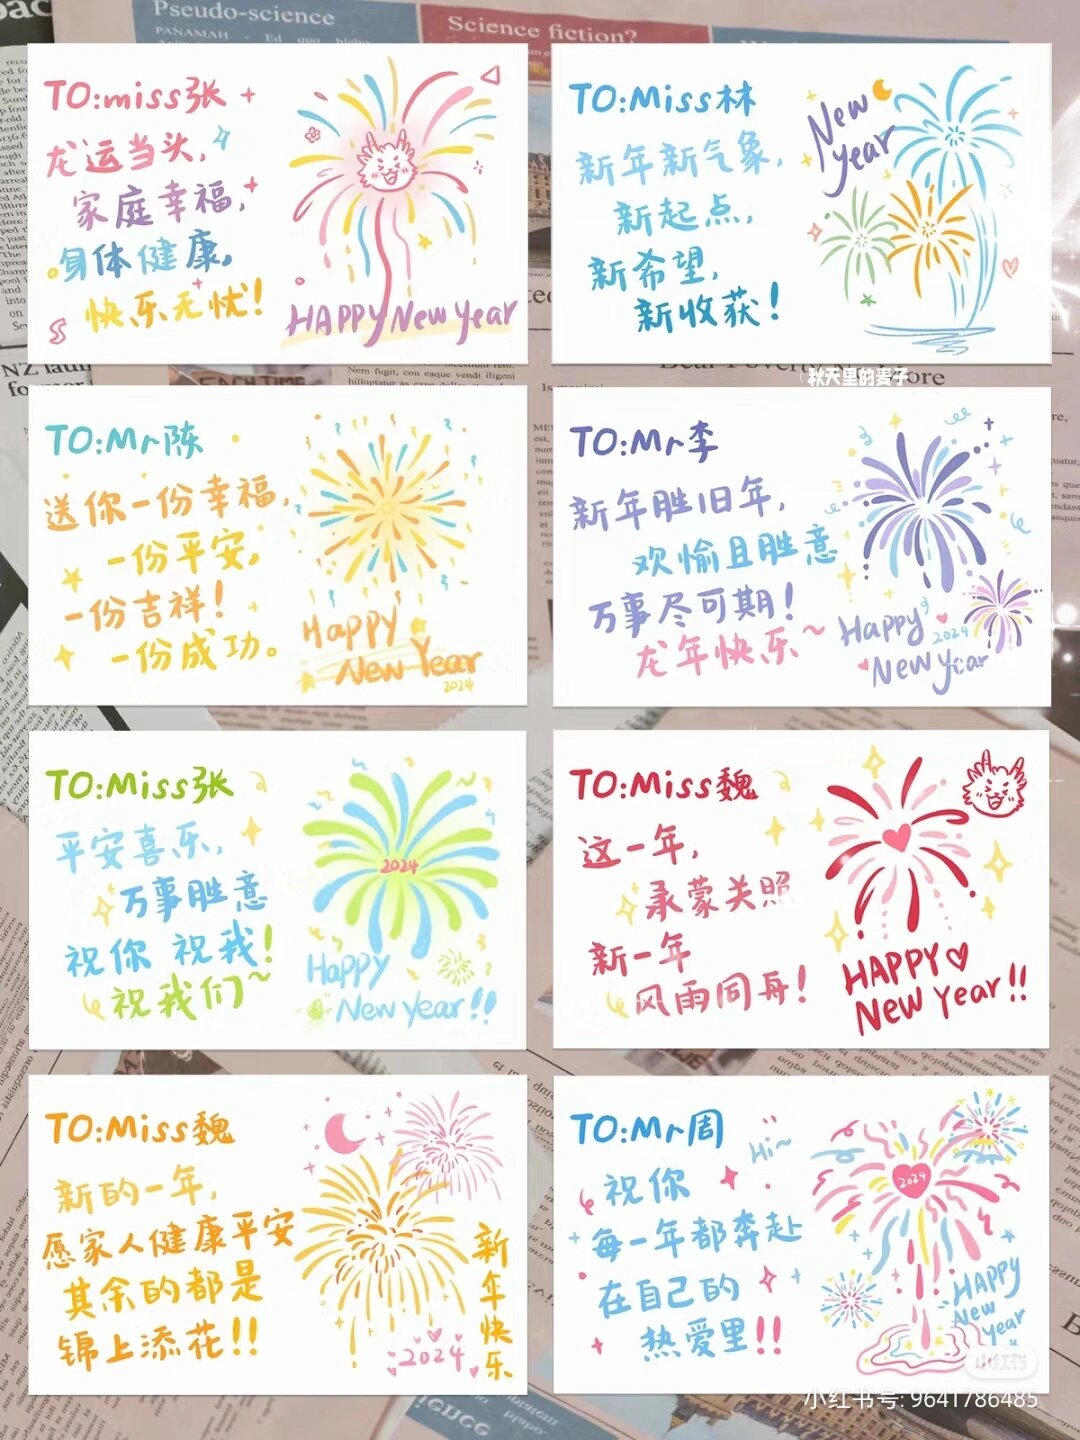 Pseudo-science
PANAMAH - Ed quo
Science fiction?
TO:miss张
龙运当头,
家庭幸福,
身体健康,
快乐无忧!
HAPPY New Year
TO:Miss林
新年新气象,
新起点,
新希望,
新收获!
New
year
NZ
Nem fugit, con earum
秋天里的麦子
TO:Mr陈
送你一份幸福,
一份平安,
一份吉祥!
一份成功。
Happy
New Year
2024
TO:Mr李
新年胜旧年,
欢愉且胜意
万事尽可期!
龙年快乐~
Happy
2024
New year
TO:Miss张
平安喜乐,
万事胜意
祝你 祝我!
祝我们~
2024
Happy
New year!!
TO:Miss魏
这一年,
承蒙关照
新一年
风雨同舟!
HAPPY
New Year!!
TO:Miss魏
新的一年,
愿家人健康平安
其余的都是
锦上添花!!
新年快乐
2024
TO:Mr周
Hi~
祝你
每一年都奔赴
在自己的
热爱里!!
2024
HAPPY
New
year
小红书
小红书号: 9641786485